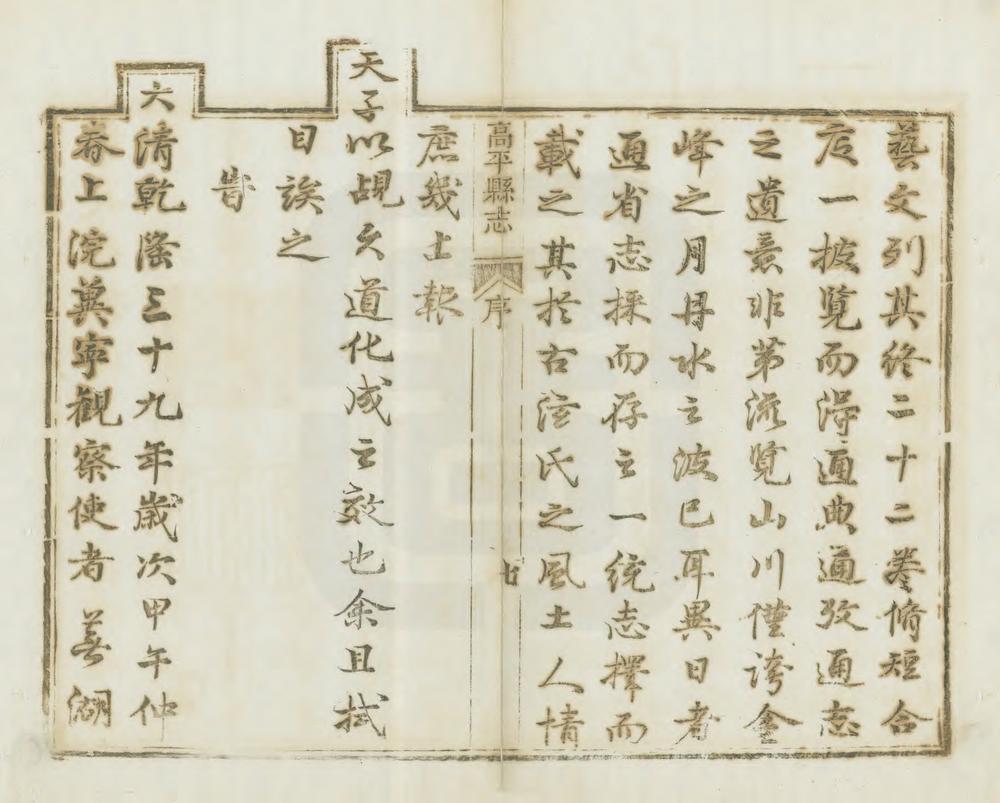 藝文列其終二十二卷脩短合
度一披覽而得通典通攷通志
之遺意非第流覽山川僅誇金
峰之月丹水之波已耳異日者
通省志採而存之一統志擇而
載之其扵古泫氏之風土人情
高平縣志 序 七
庶幾上報
天子以覘久道化成之效也余且拭
目俟之
旹
大清乾隆三十九年歲次甲午仲
春上浣冀寧觀察使者 湖